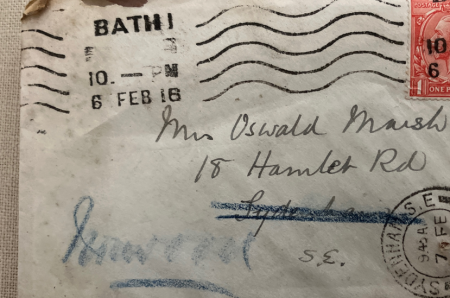 BATH
10. — PM
6 FEB 16
10
6
ONE P
Mrs Oswald Marsh
18 Hamlet Rd
Sydenham
Norwood
S.E.
SYDENHAM S.E.
9.45 A
7 FE